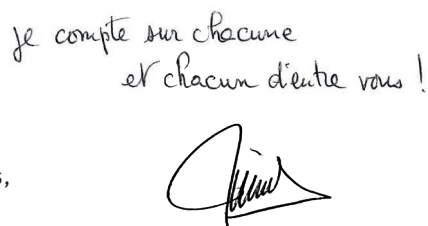 Je compte sur chacune
et chacun d'entre vous !
s,